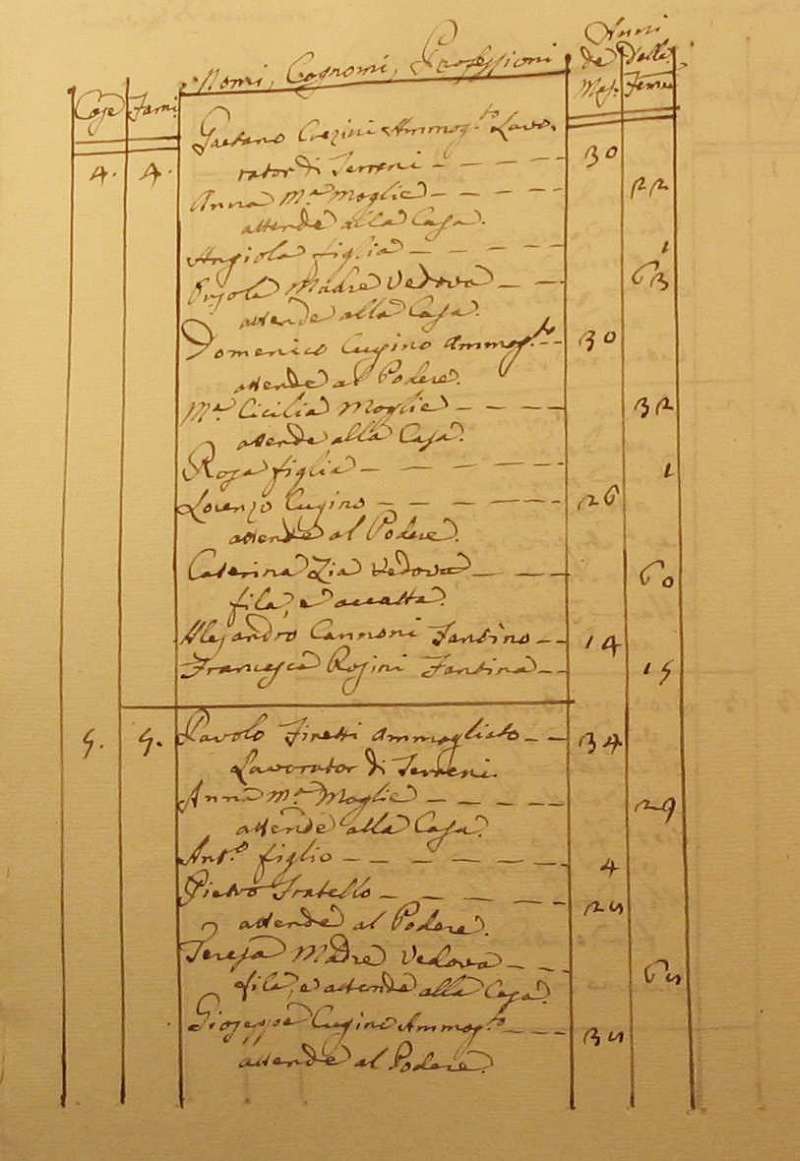 Anni
Nomi, Cognomi, Professioni de Delle
Case Fami: Mas: Femie
Gaetano Ammog.to Lavo.
4. 4. rator di Terreni 30
Anna M.a Moglie 22
attende alla Casa.
Angiola figlia 1
Orsola Madre Vedova 63
attende alla Casa.
Domenico Cugino Ammog.to 30
attende al Podere.
M.a Cicilia Moglie 32
attende alla Casa.
Rosa figlia 1
Lorenzo Cugino 26
attende al Podere.
Caterina Zia Vedova 60
fila, e accatta.
Alesandro Cannoni Fantino 14
Francesca Rosini Fantina 15
5. 5. Pavolo Finetti Ammogliato 34
Lavorator di Terreni.
Anna M.a Moglie 29
attende alla Casa.
Ant.o figlio 4
Pietro Fratello 25
attende al Podere.
Teresa Madre Vedova 65
fila, e attende alla Casa.
Gioseppe Cugino Ammog.to 35
attende al Podere.